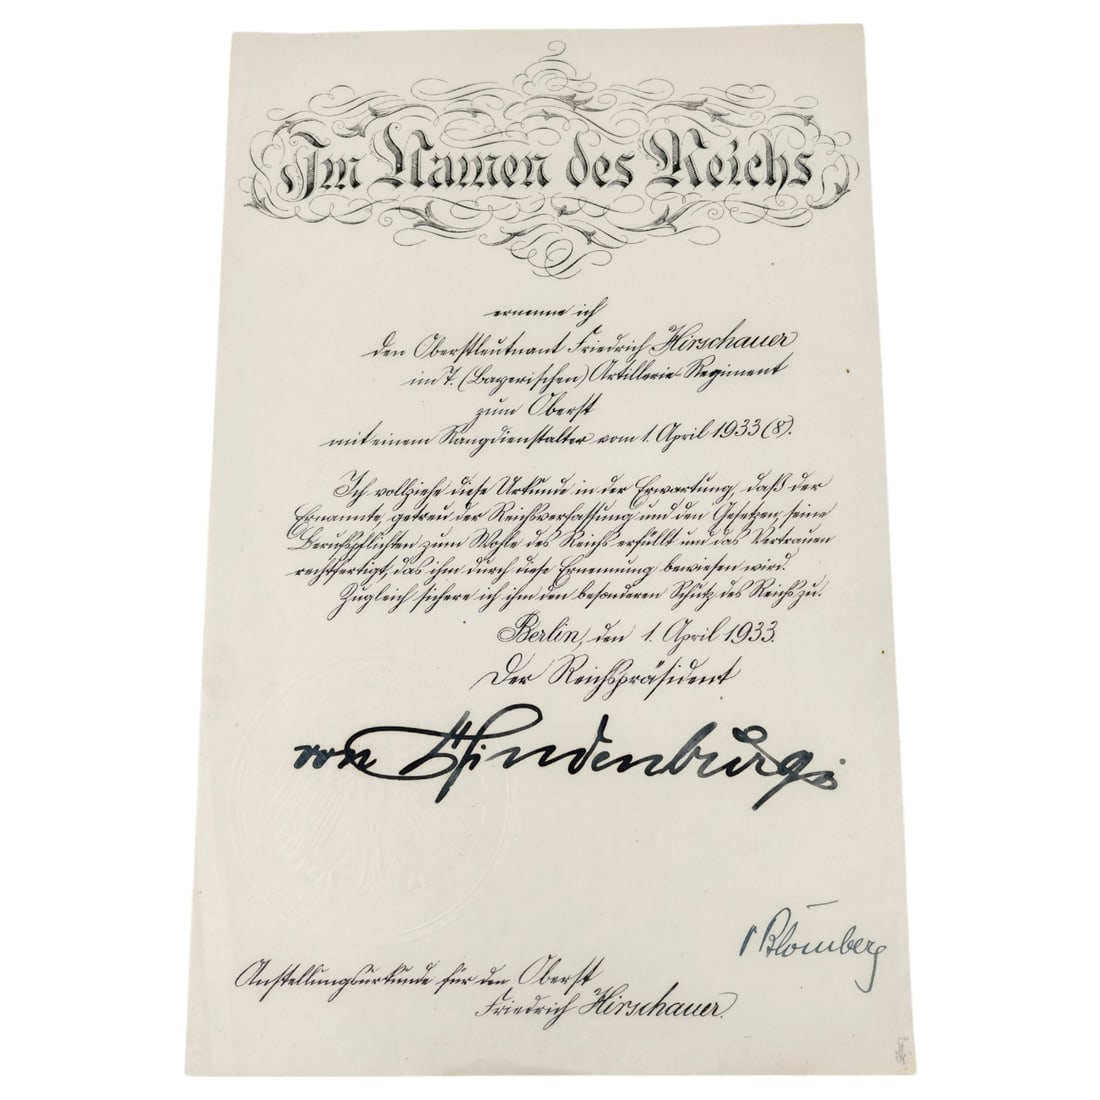 Im Namen des Reichs
ernenne ich
den Oberstleutnant Friedrich Hirschauer
im 7. (Bayerischen) Artillerie-Regiment
zum Oberst
mit einem Rangdienstalter vom 1. April 1933 (8).
Ich vollziehe diese Urkunde in der Erwartung, daß der
Ernannte, getreu der Reichsverfassung und den Gesetzen, seine
Berufspflichten zum Wohle des Reichs erfüllt und das Vertrauen
rechtfertigt, das ihm durch diese Ernennung bewiesen wird.
Zugleich sichere ich ihm den besonderen Schutz des Reichs zu.
Berlin, den 1. April 1933.
Der Reichspräsident
von Hindenburg
v Blomberg
Anstellungsurkunde für den Oberst
Friedrich Hirschauer.